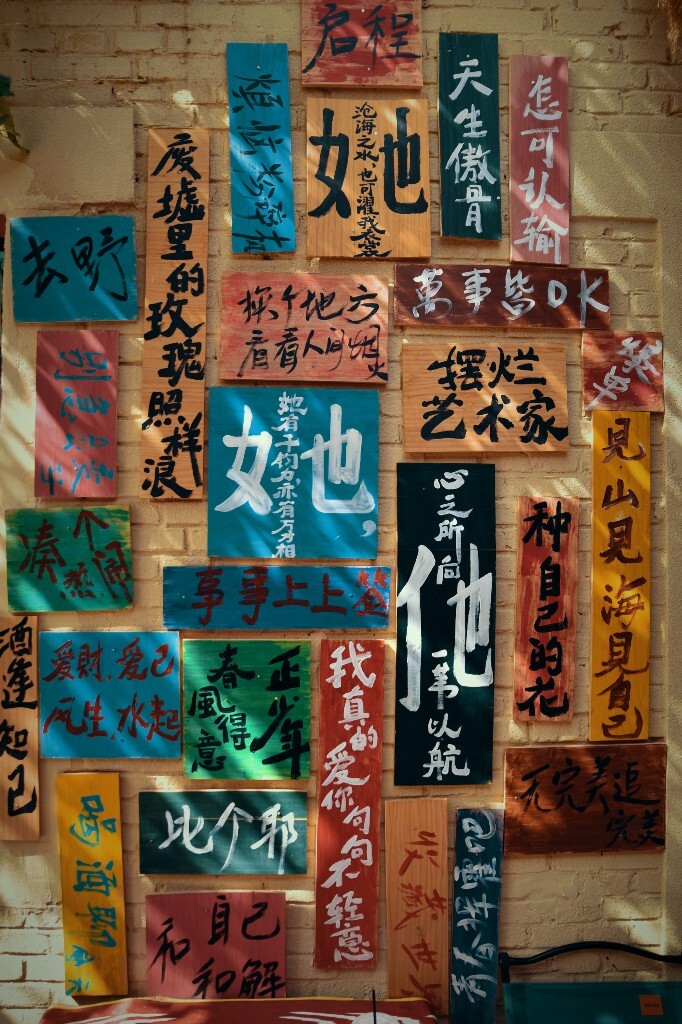 启程
她
沧海之水,也可濯我衣裳
天生傲骨
怎可认输
废墟里的玫瑰照样浪
去野
换个地方
看看人间烟火
萬事皆OK
摆烂
艺术家
她,
她有千钧力亦有万方相
心之所向
他
一苇以航
種自己的花
見山見海見自己
凑个热闹
事事上上
酒逢知己
爱財,爱己
风生,水起
正少年
春風得意
我真的爱你句句不轻意
无完美追
完美
喝酒聊天
比个耶
和自己
和解